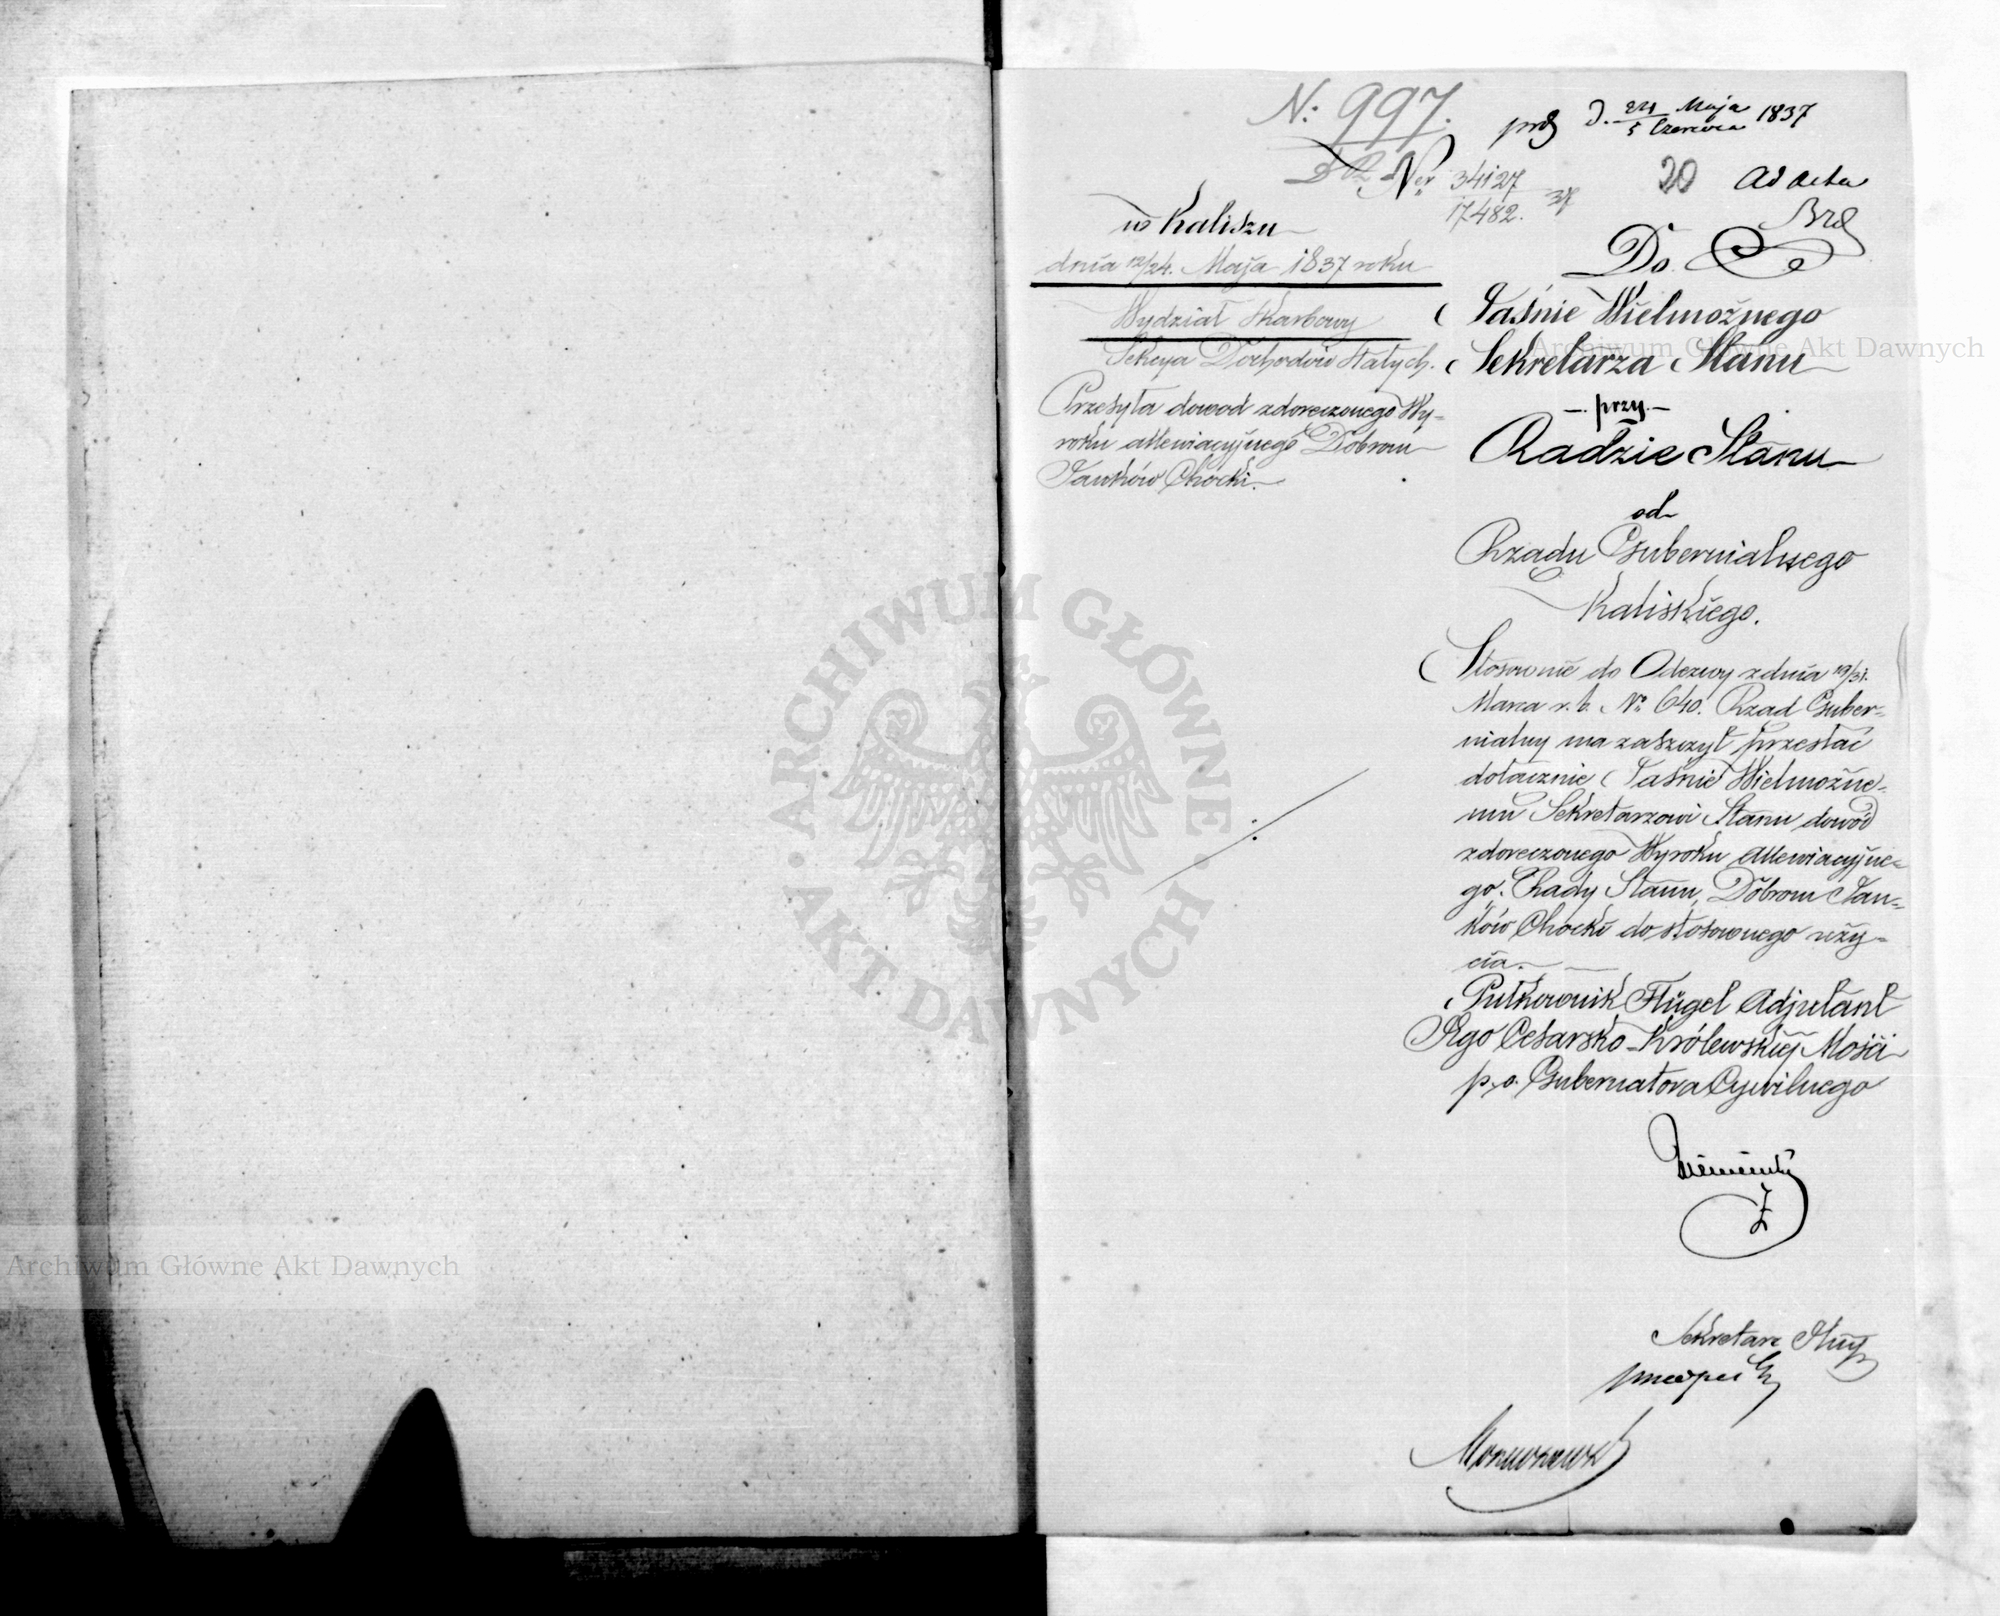 N: 997.
D. 24 Maja 1837
5 Czerwca
Ner 34127
17482.
20 Ad acta
w Kaliszu
dnia 12/24. Maja 1837 roku
Wydział Skarbowy
Sekcya Dochodów Stałych.
Przesyła dowod zdoręczonego Wy-
roku allewiacyjnego Dobrom
Janków Chocki.
Do
Jaśnie Wielmożnego
Sekretarza Stanu
przy
Radzie Stanu
od
Rządu Gubernialnego
Kaliskiego.
Stosownie do Odezwy z dnia 19/31.
Marca r. b. No 640. Rząd Guber-
nialny ma zaszczyt przesłać
dołącznie Jaśnie Wielmożne-
mu Sekretarzowi Stanu dowód
zdoręczonego Wyroku allewiacyjne-
go Rady Stanu, Dobrom Jan-
ków Chocki do stosownego uży-
cia.
Pułkownik Flügel Adjutant
Jego Cesarsko-Królewskiej Mości
p. o. Gubernatora Cywilnego
Sekretarz
Archiwum Główne Akt Dawnych
Archiwum Główne Akt Dawnych
ARCHIWUM GŁÓWNE AKT DAWNYCH